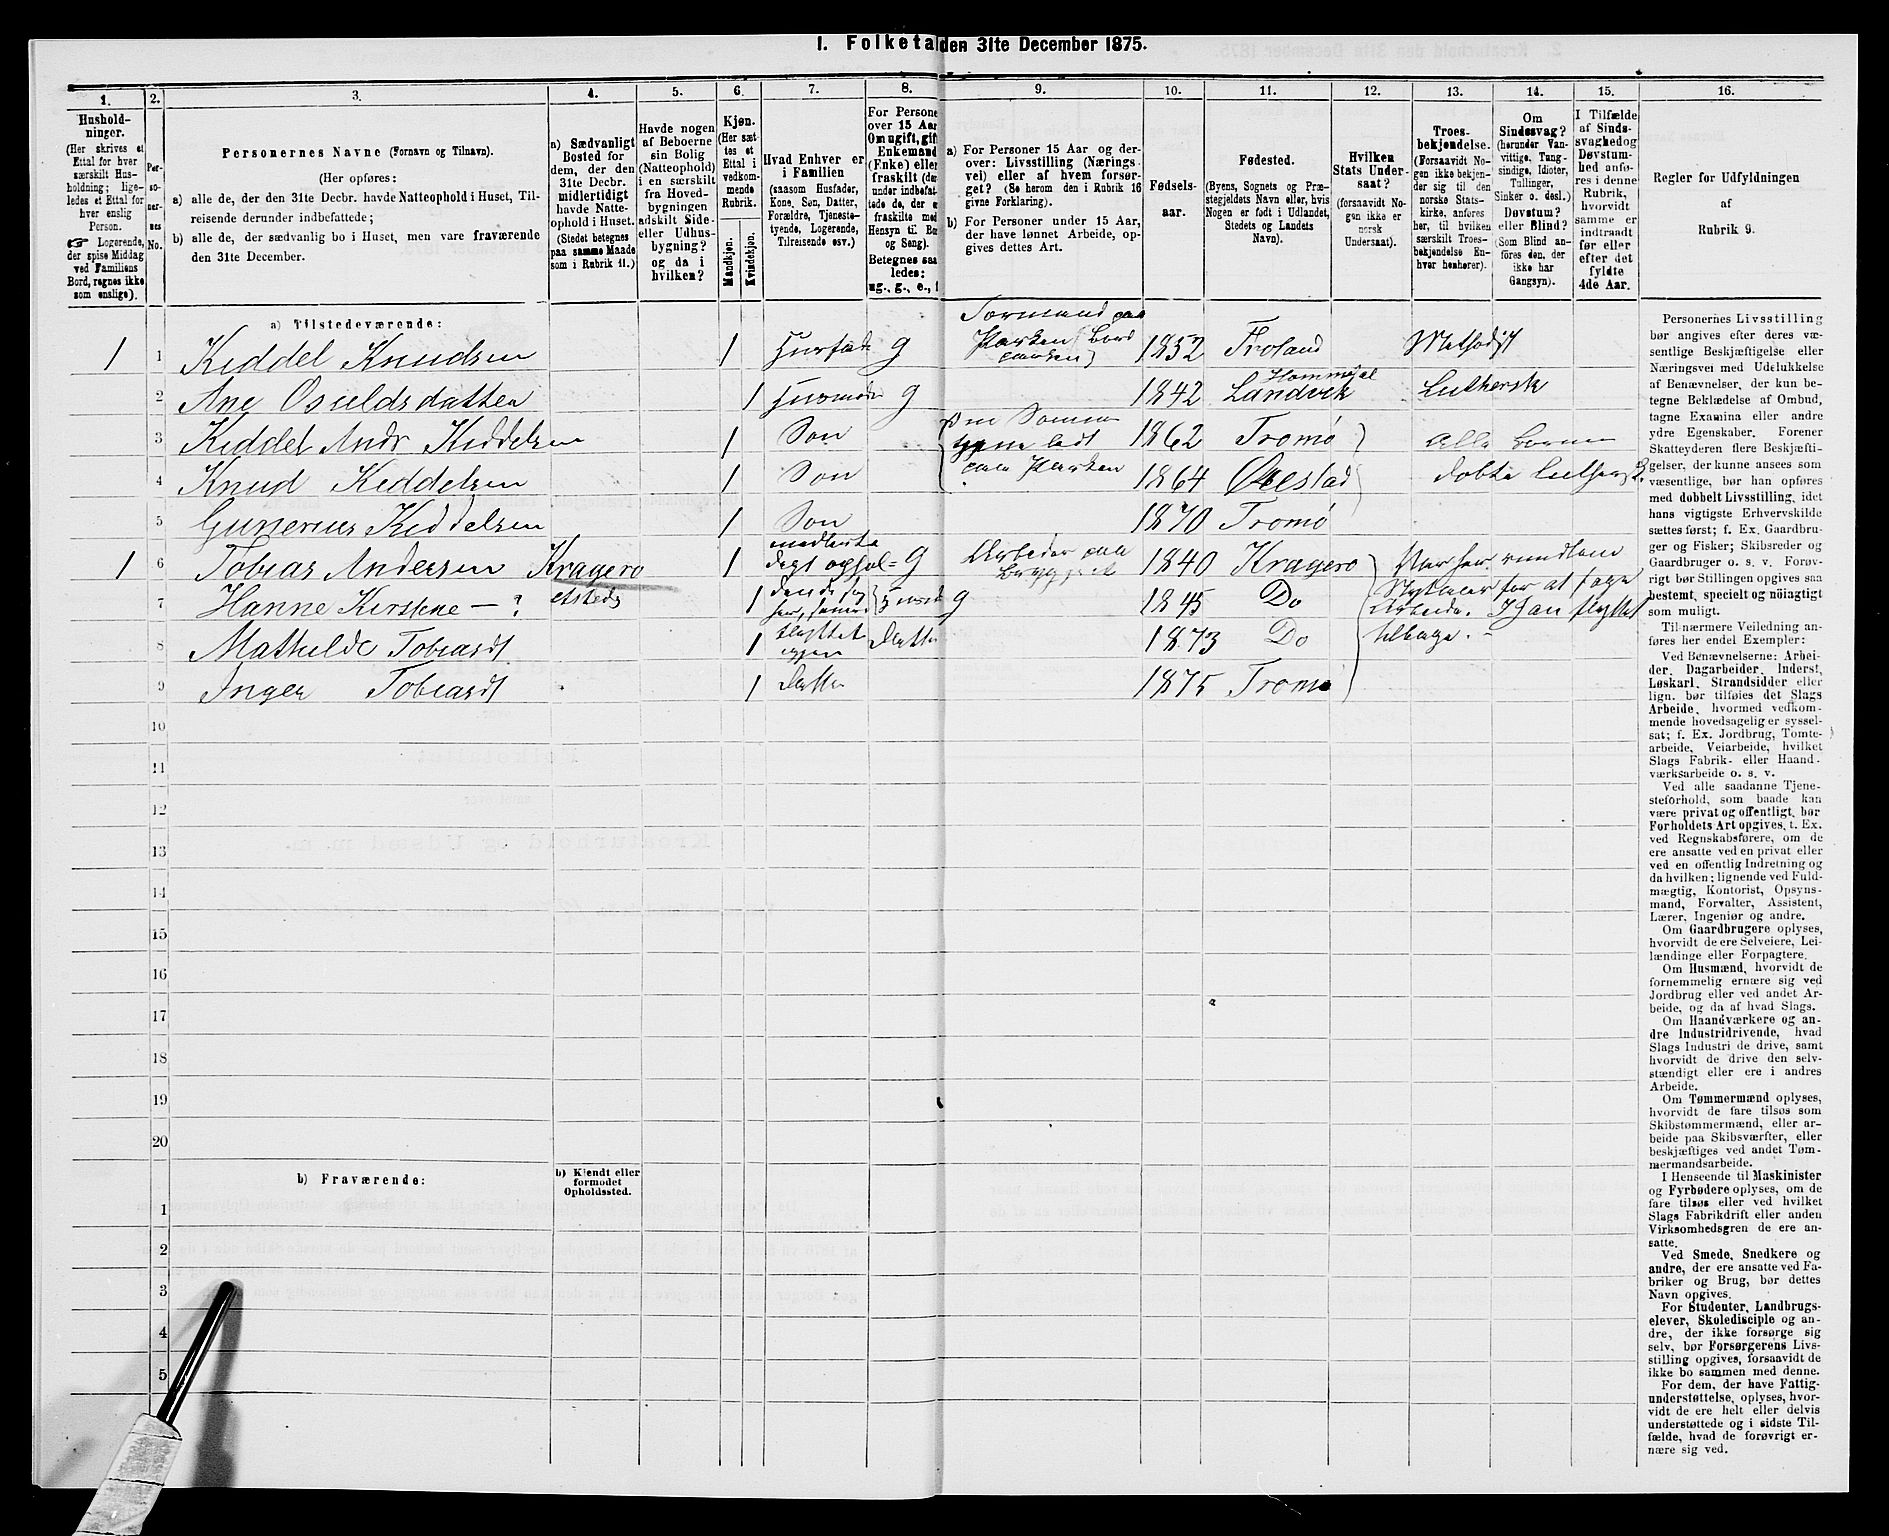 I. Folketal den 31te December 1875.
1.
Hushold-
ninger.
(Her skrives et
Ettal for hver
særskilt Hus-
holdning; lige-
ledes et Ettal for
hver enslig
Person.
☞ Logerende,
der spise Middag
ved Familiens
Bord, regnes ikke
som enslige).
2.
Per-
so-
ner-
nes
No.
3.
Personernes Navne (Fornavn og Tilnavn).
(Her opføres:
a) alle de, der den 31te Decbr. havde Natteophold i Huset, Til-
reisende derunder indbefattede;
b) alle de, der sædvanlig bo i Huset, men vare fraværende
den 31te December.
4.
a) Sædvanligt
Bosted for
dem, der den
31te Decbr.
midlertidigt
havde Natte-
ophold i Huset.
(Stedet betegnes
paa samme Maade
som i Rubrik 11.)
5.
Havde nogen
af Beboerne
sin Bolig
(Natteophold)
i en særskilt
fra Hoved-
bygningen
adskilt Side-
eller Udhus-
bygning?
og da i
hvilken?
6.
Kjøn.
(Her sæt-
tes et
Ettal i
vedkom-
mende
Rubrik.
Mandkjøn.
Kvindekjøn.
7.
Hvad Enhver er
i Familien
(saasom Husfader,
Kone, Søn, Datter,
Forældre, Tjeneste-
tyende, Logerende,
Tilreisende osv.)
8.
For Persone
over 15 Aar
Om ugift, gift
Enkemand
(Enke) eller
fraskilt (de
under indbefat
tede de, der e
fraskilte med
Hensyn til Bo
og Seng).
Betegnes saa
ledes:
ug., g., e.,
9.
a) For Personer 15 Aar og der-
over: Livsstilling (Nærings-
vei) eller af hvem forsør-
get? (Se herom den i Rubrik 16
givne Forklaring).
b) For Personer under 15 Aar,
der have lønnet Arbeide, op-
gives dettes Art.
10.
Fødsels-
aar.
11.
Fødested.
(Byens, Sognets og Præ-
stegjeldets Navn eller, hvis
Nogen er født i Udlandet,
Stedets og Landets
Navn).
12.
Hvilken
Stats Under-
saat?
(forsaavidt No-
gen ikke er
norsk
Undersaat).
13.
Troes-
bekjendelse.
(Forsaavidt No-
gen ikke bekjen-
der sig til den
norske Stats-
kirke, anføres
her, til hvilken
særskilt Troes-
bekjendelse En-
hver henhører).
14.
Om
Sindssvag?
(herunder Van-
vittige, Tung-
sindige, Idioter,
Tullinger,
Sinker o. desl.)
Døvstum?
eller Blind?
(Som Blind an-
føres den, der
ikke har
Gangsyn).
15.
I Tilfælde
af Sinds-
svaghed og
Døvstum-
hed anfø-
res i denne
Rubrik,
hvorvidt
samme er
indtraadt
før eller
efter det
fyldte
4de Aar.
16.
Regler for Udfyldningen
af
Rubrik 9.
a) Tilstedeværende:
1 1 Kiddel Knudsen 1 Husfad g Formand paa Parken 1832 Froland Methodist
2 Ane Osuldsdatter 1 Husmoder g 1842 Hommedal Landvik Luthersk
3 Kiddel Andr Kiddelsen 1 Søn 1862 Tromø Alle Børnene
4 Knud Kiddelsen 1 Søn paa Parken 1864 Øiestad døbte
5 Gunerius Kiddelsen 1 Søn 1870 Tromø
1 6 Tobias Andersen Kragerø 1 g Arbeider paa 1840 Kragerø
7 Hanne Kirstine — ? etsteds 1 g 1845 Do
8 Mathilde Tobiasdt 1 flyttet igjen Datter 1873 Do tilbage. –
9 Inger Tobiasdt 1 Datter 1875 Tromø
10
11
12
13
14
15
16
17
18
19
20
b) Fraværende:
b) Kjendt eller
formodet
Opholdssted.
1
2
3
4
5
Personernes Livsstilling
bør angives efter deres væ-
sentlige Beskjæftigelse eller
Næringsvei med Udelukkelse
af Benævnelser, der kun be-
tegne Beklædelse af Ombud,
tagne Examina eller andre
ydre Egenskaber. Forener
Skatteyderen flere Beskjæfti-
gelser, der kunne ansees som
væsentlige, bør han opføres
med dobbelt Livsstilling, idet
hans vigtigste Erhvervskilde
sættes først; f. Ex. Gaardbru-
ger og Fisker; Skibsreder og
Gaardbruger o. s. v. Forøv-
rigt bør Stillingen opgives saa
bestemt, specielt og nöiagtigt
som muligt.
Til nærmere Veiledning an-
føres her endel Exempler:
Ved Benævnelserne: Arbei-
der, Dagarbeider, Inderst,
Løskarl, Strandsidder eller
lign. bør tilføies det Slags
Arbeide, hvormed vedkom-
mende hovedsagelig er syssel-
sat; f. Ex. Jordbrug, Tomte-
arbeide, Veiarbeide, hvilket
Slags Fabrik- eller Haand-
værksarbeide o. s. v.
Ved alle saadanne Tjene-
steforhold, som baade kan
være privat og offentligt, bør
Forholdets Art opgives, t. Ex.
ved Regnskabsførere, om de
ere ansatte ved en privat eller
ved en offentlig Indretning og
da hvilken; lignende ved Fuld-
mægtig, Kontorist, Opsyns-
mand, Forvalter, Assistent,
Lærer, Ingeniør og andre.
Om Gaardbrugere oplyses,
hvorvidt de ere Selveiere, Lei-
lændinge eller Forpagtere.
Om Husmænd, hvorvidt de
fornemmelig ernære sig ved
Jordbrug eller ved andet Ar-
beide, og da af hvad Slags.
Om Haandværkere og an-
dre Industridrivende, hvad
Slags Industri de drive, samt
hvorvidt de drive den selv-
stændigt eller ere i andres
Arbeide.
Om Tømmermænd oplyses,
hvorvidt de fare tilsøs som
Skibstømmermænd, eller ar-
beide paa Skibsværfter, eller
beskjæftiges ved andet Tøm-
mermandsarbeide.
I Henseende til Maskinister
og Fyrbødere oplyses, om de
fare tilsøs eller ved hvilket
Slags Fabrikdrift eller anden
Virksomhedsgren de ere an-
satte.
Ved Smede, Snedkere og
andre, der ere ansatte ved Fa-
briker og Brug, bør dettes
Navn opgives.
For Studenter, Landbrugs-
elever, Skoledisciple og an-
dre, der ikke forsørge sig
selv, bør Forsørgerens Livs-
stilling opgives, forsaavidt de
ikke bo sammen med denne.
For dem, der have Fattig-
understøttelse, oplyses, hvor-
vidt de ere helt eller delvis
understøttede og i sidste Til-
fælde, hvad de forøvrigt er-
nære sig ved.